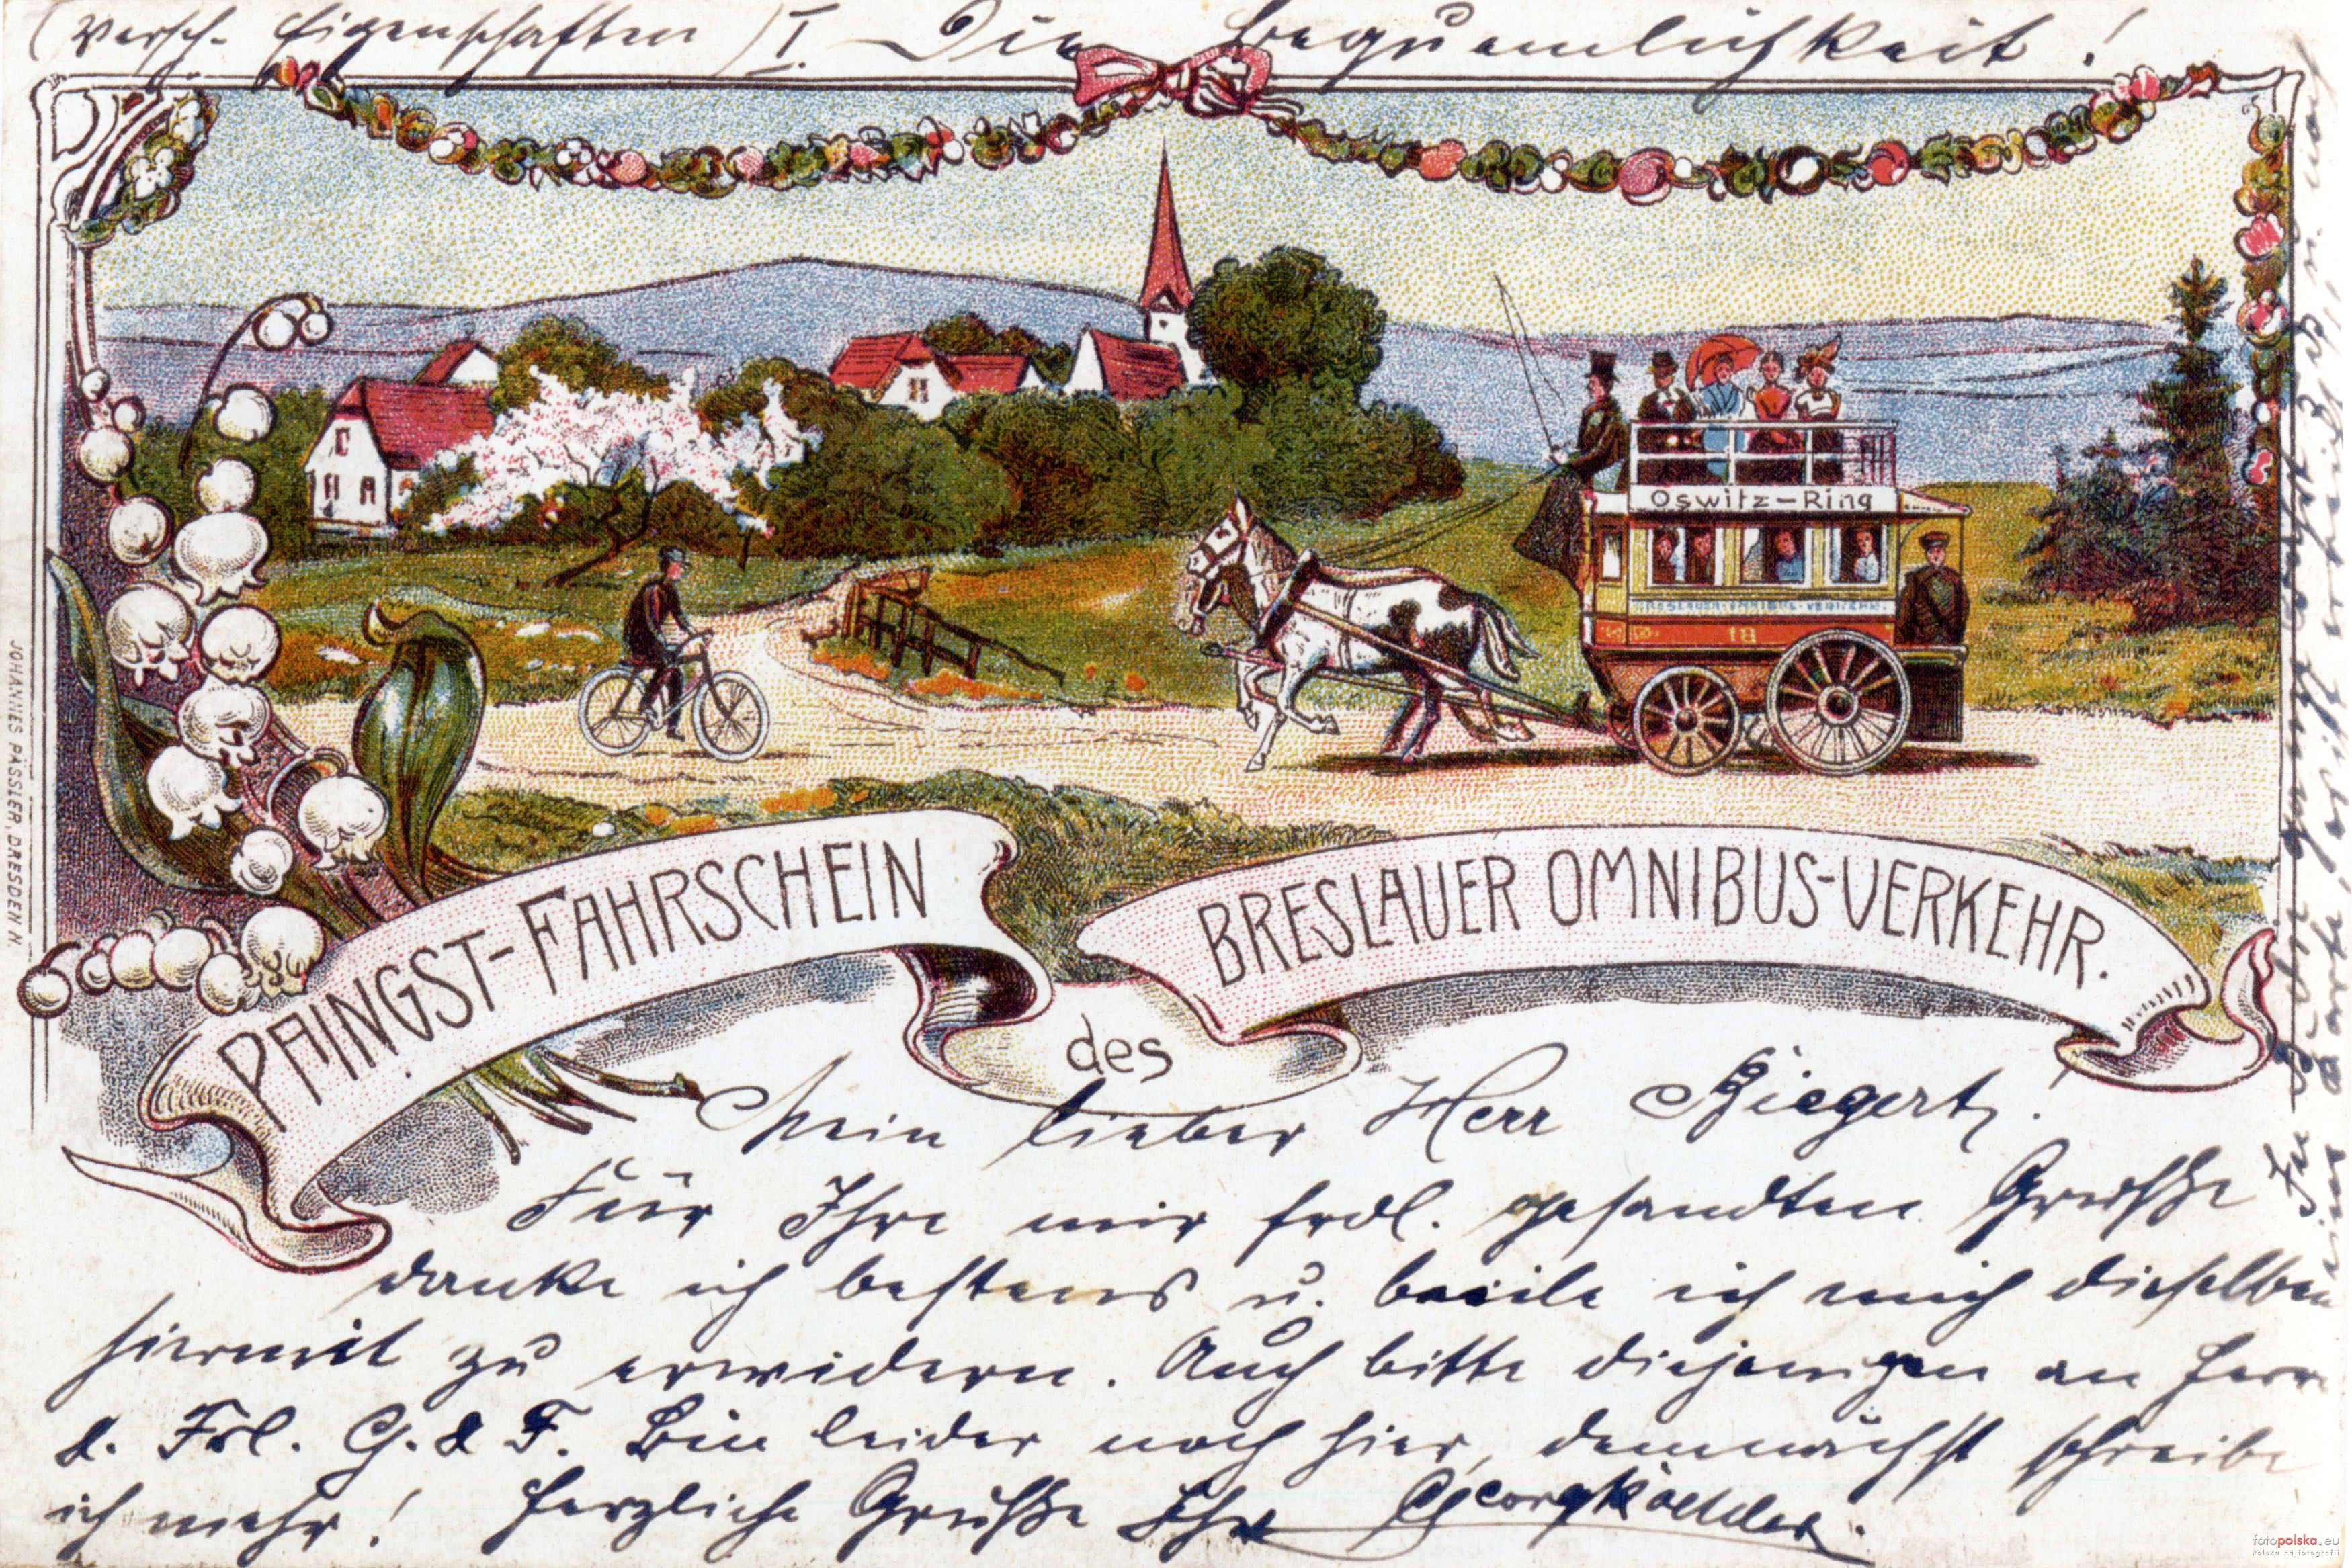 (versch. Eigenschaften) I. Die Bequemlichkeit!
Oswitz-Ring
BRESLAUER-OMNIBUS-VERKEHR.
18
JOHANNES PÄSSLER, DRESDEN N.
PFINGST-FAHRSCHEIN
des
BRESLAUER OMNIBUS-VERKEHR.
Mein lieber Herr
Für Ihre mir frdl. gesandten Grüsse
danke ich bestens u. beeile ich mich dieselben
hiermit zu erwidern. Auch bitte diejenigen an Herrn
&. Frl. G. & F. Bin leider noch hier, demnächst schreibe
ich mehr! Herzliche Grüsse Ihr Georg
fotopolska.eu
Polska na fotografii